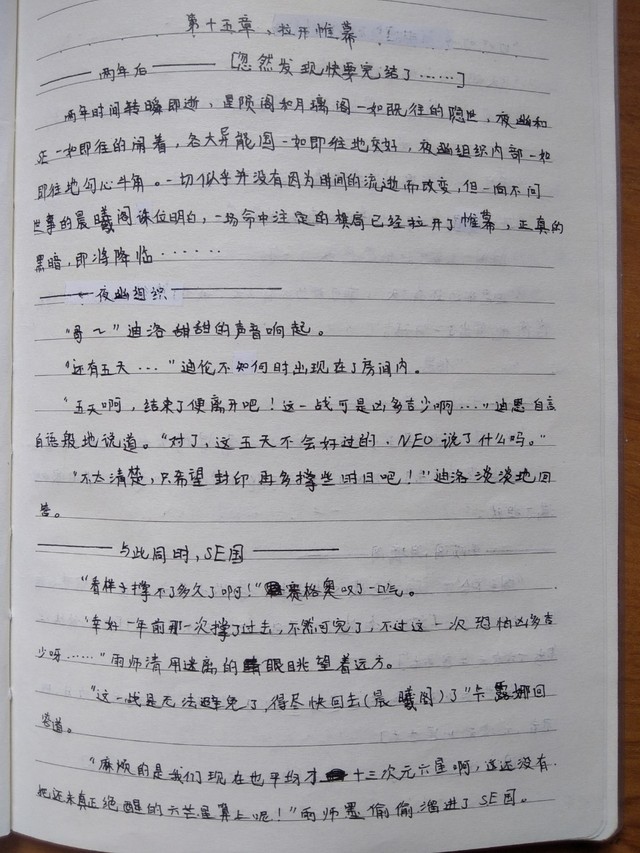 第十五章、拉开帷幕
—— 两年后 —— [忽然发现快要完结了……]
两年时间转瞬即逝,星陨阁和月璃阁一如既往的隐世,夜幽和
正一如即往的闹着,各大异能国一如即往地交好,夜幽组织内部一如
即往地勾心斗角。一切似乎并没有因为时间的流逝而改变,但一向不问
世事的晨曦阁诛位明白,一场命中注定的棋局已经拉开了帷幕,正真的
黑暗,即将降临······
夜幽组织
“哥~”迪洛甜甜的声音响起。
“还有五天…”迪伦不知何时出现在了房间内。
“五天啊,结束了便离开吧!这一战可是凶多吉少啊……”迪恩自言
自语般地说道。“对了,这五天不会好过的.NEO说了什么吗。”
“不太清楚,只希望封印再多撑些时日吧!”迪洛淡淡地回
答。
—— 与此同时,SE国 ——
“看样子撑不了多久了啊!”赛格奥叹了一口气。
“幸好一年前那一次撑了过去,不然可完了,不过这一次恐怕凶多吉
少呀……”雨师清用迷离的眼眺望着远方。
“这一战是无法避免了,得尽快回去(晨曦阁)了”卡露娜回
答道。
“麻烦的是我们现在也平均才十三次元六星啊,这还没有
把还未真正绝醒的六芒星算上呢!”雨师墨偷偷溜进了SE国。